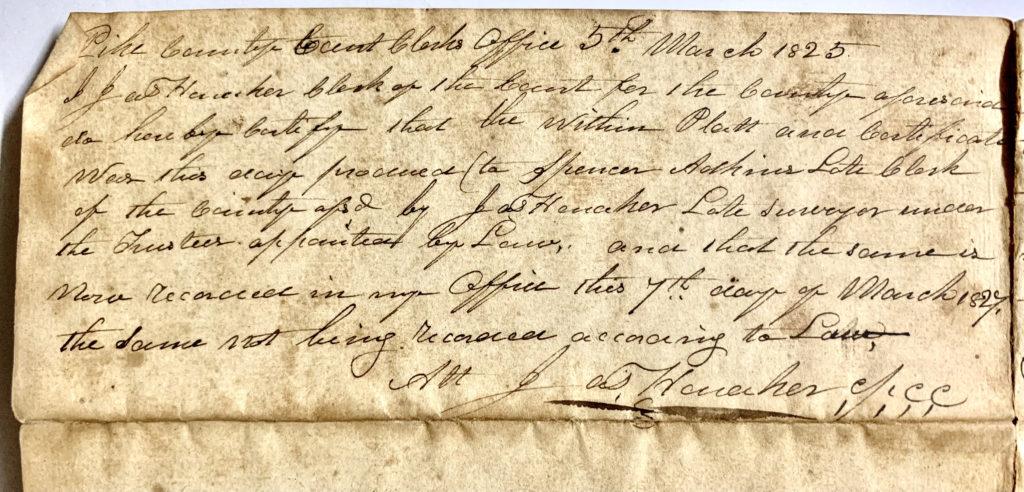 Pike County Court Clerks Office 5th March 1825
I Jas Honaker Clerk of the Court for the County aforesaid
do hereby Certify that the within Platt and Certificate
Was this day produced (to Spencer Adkins Late Clerk
of the County afsd by Jas Honaker Late Surveyor under
the Trustees appointed by Law. and that the same is
Now recorded in my Office this 7th day of March 1827,
the same not being recorded according to Law,
Att Jas, Honaker C,P,C,C